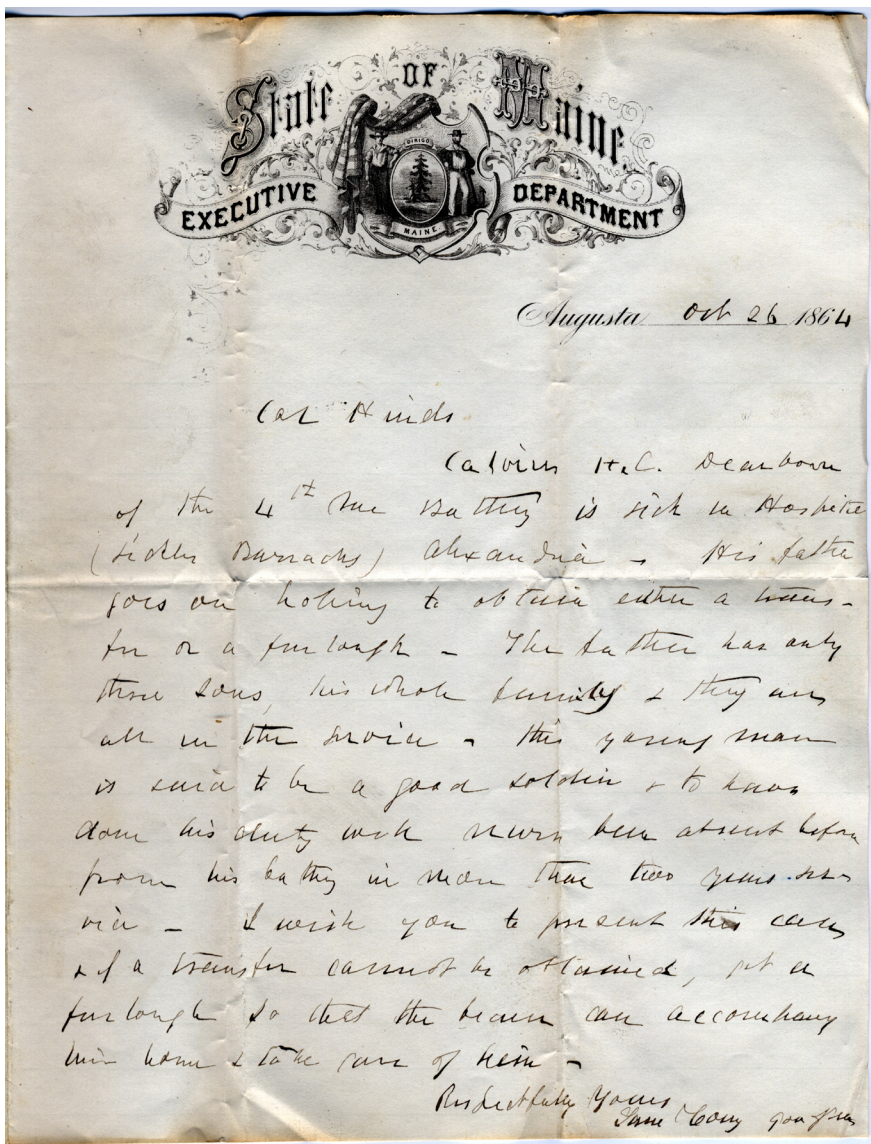 State OF Maine
DIRIGO
EXECUTIVE DEPARTMENT
MAINE
Augusta Oct 26 1864
Col Hinds
Calvin H.C. Dearborn
of the 4th Me Battery is sick in Hospital
(Sickles Barracks) Alexandria - His father
goes on hoping to obtain either a trans-
fer or a furlough - The father has only
three sons, his whole family & they are
all in the service - this young man
is said to be a good soldier & to have
done his duty well never been absent before
from his battery in more than two years ser-
vice - I wish you to present this case
& if a transfer cannot be obtained, get a
furlough so that the bearer can accompany
him home & take care of him -
Respectfully Yours
Saml Cony